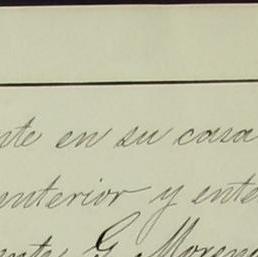 nte en su casa
anterior y ente
ente G. Moreno